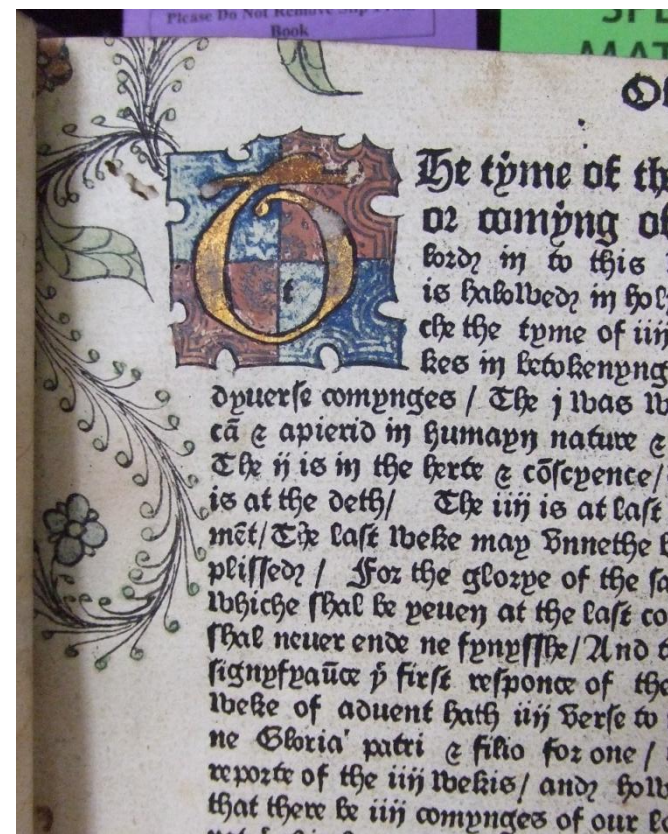 Please Do Not Remove Slip From
Book
The tÿme of th
or comÿng o
lord in to this
is halowed in hol
che the tyme of iiij
kes in betokenyng
dyuerse comynges / The j was w
cā & apierid in humayn nature &
The ij is in the herte & cōscyence /
is at the deth / The iiij is at last
mēt / The last weke may vnnethe
plissed / For the glorye of the s
whiche shal be yeuen at the last co
shal neuer ende ne fynysshe / And t
signyfyaūce yͤ first responce of the
weke of aduent hath iiij verse to
ne Gloria patri & filio for one /
reporte of the iiij wekis / and how
that there be iiij comynges of our